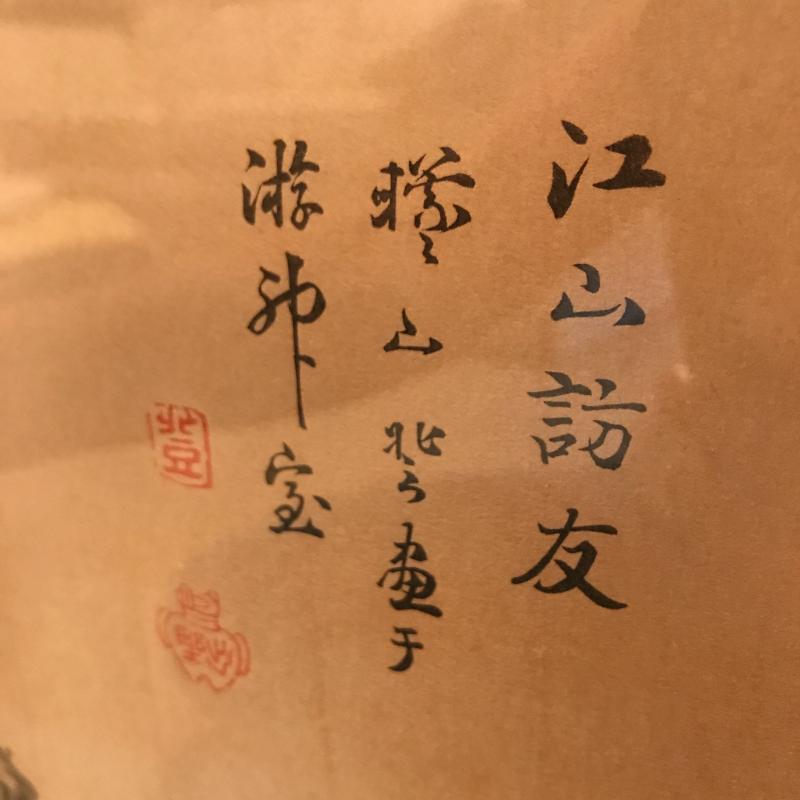 江山訪友
山登畫于
游神室